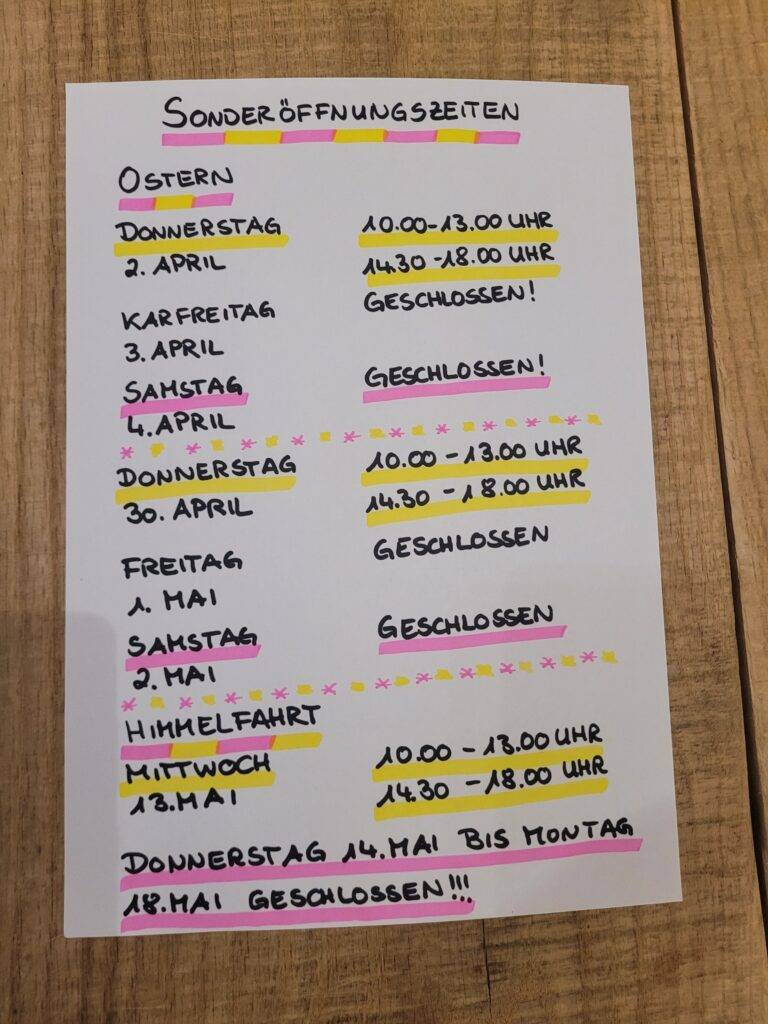 SONDERÖFFNUNGSZEITEN
OSTERN
DONNERSTAG 10.00-13.00 UHR
2. APRIL 14.30 -18.00 UHR
KARFREITAG GESCHLOSSEN!
3. APRIL
SAMSTAG GESCHLOSSEN!
4. APRIL
DONNERSTAG 10.00 - 13.00 UHR
30. APRIL 14.30 - 18.00 UHR
FREITAG GESCHLOSSEN
1. MAI
SAMSTAG GESCHLOSSEN
2. MAI
HIMMELFAHRT
MITTWOCH 10.00 - 13.00 UHR
13. MAI 14.30 - 18.00 UHR
DONNERSTAG 14. MAI BIS MONTAG
18. MAI GESCHLOSSEN!!!